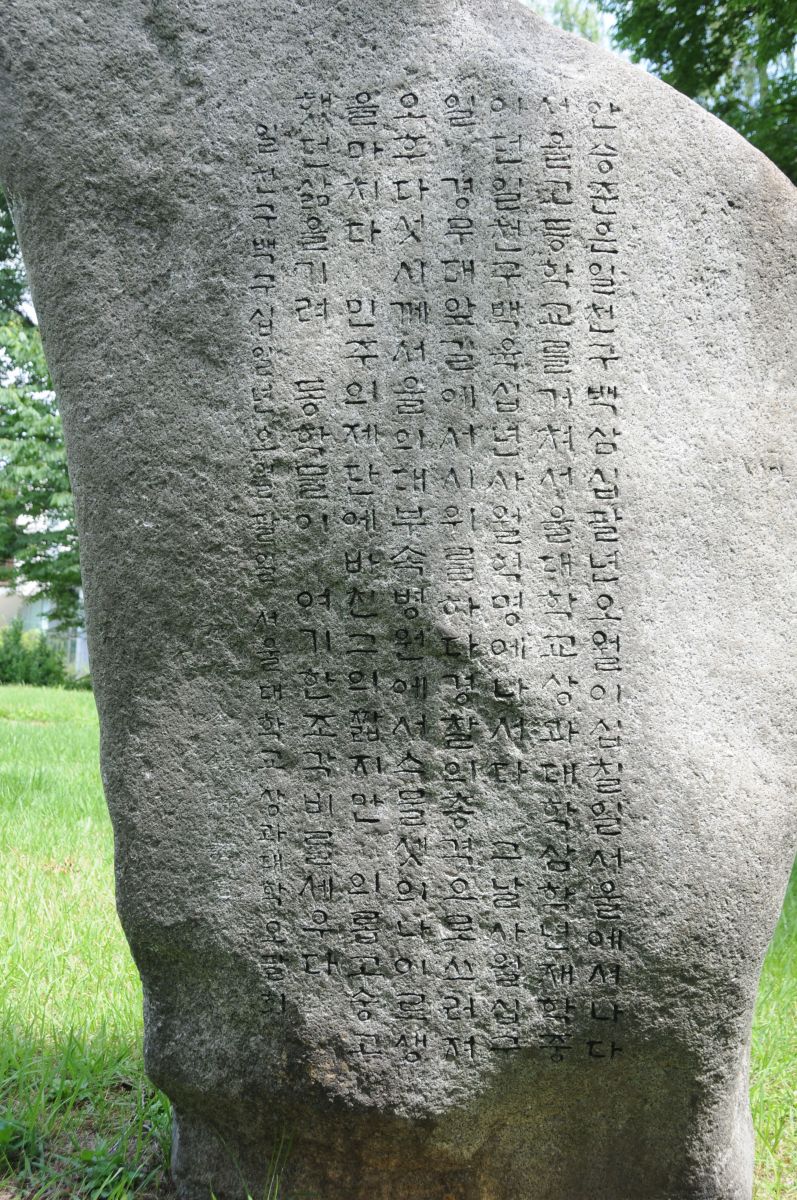 안승준은 일천구백삼십팔년 오월 이십칠일 서울에서 나다
서울고등학교를 거쳐 서울대학교 상과대학 삼학년 재학중
이던 일천구백육십년 사월혁명에 나서다 그날 사월 십구
일 경무대 앞길에서 시위를 하다 경찰의 총격으로 쓰러저
오후 다섯시께 서울의대 부속병원에서 스물셋의 나이로 생
을 마치다 민주의 제단에 바친 그의 짧지만 의롭고 숭고
했던 삶을 기려 동학들이 여기 한조각 비를 세우다
일천구백구십일년 일 서울대학교 상과대학